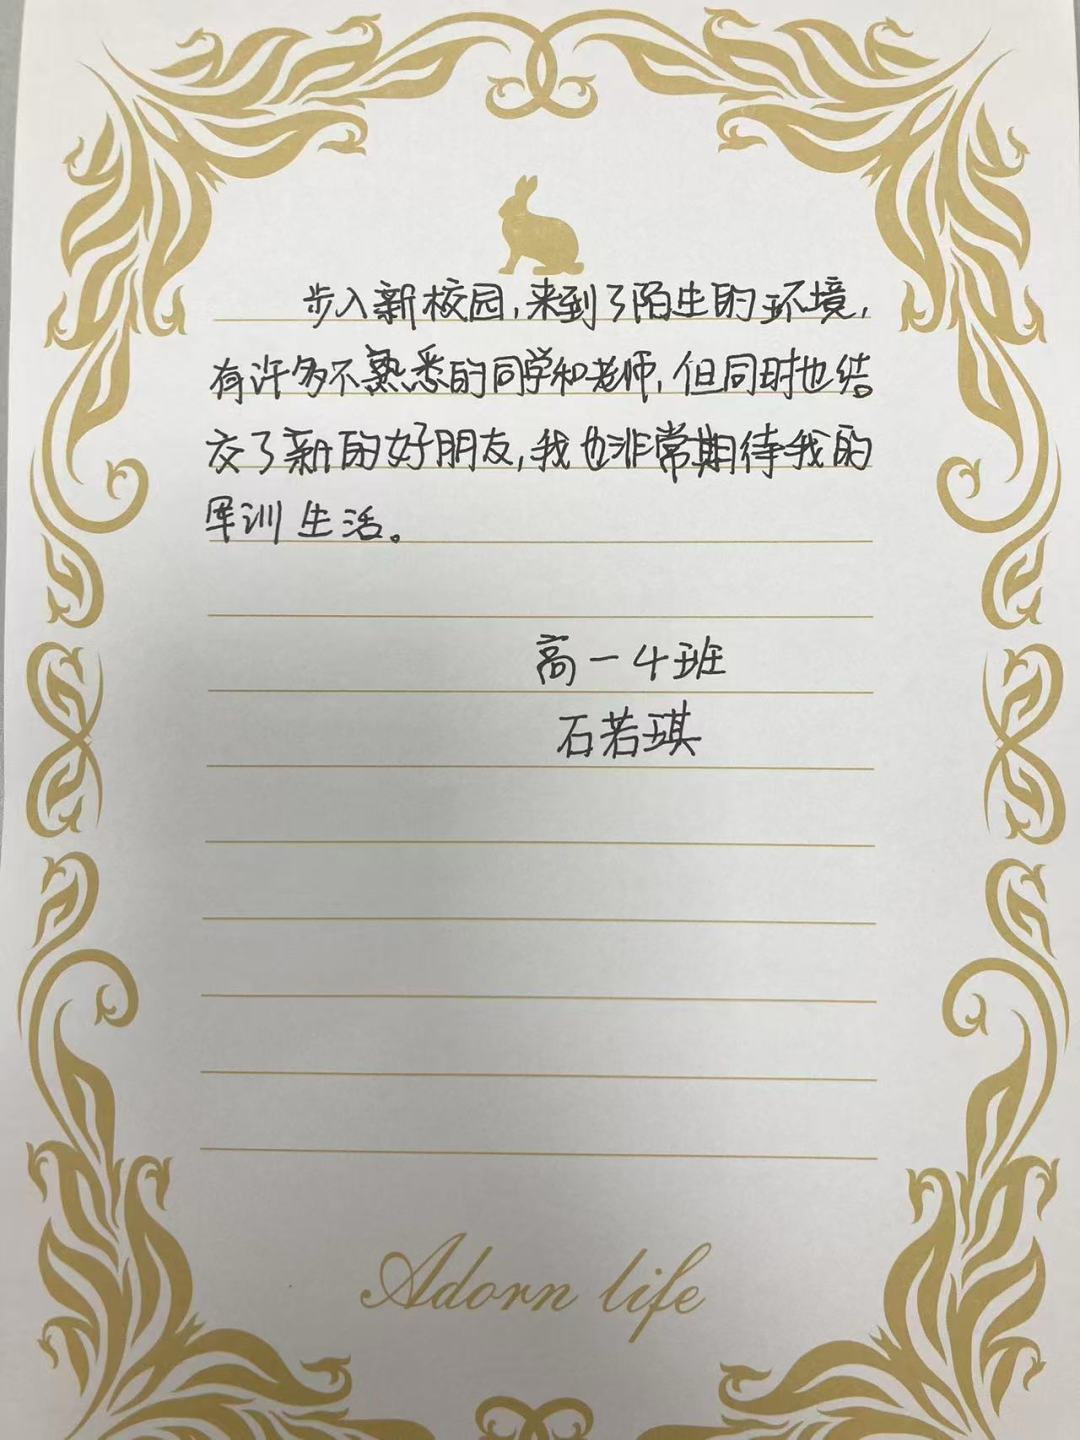 步入新校园,来到了陌生的环境,
有许多不熟悉的同学和老师,但同时也结
交了新的好朋友,我也非常期待我的
军训生活。
高一4班
石若琪
Adorn life